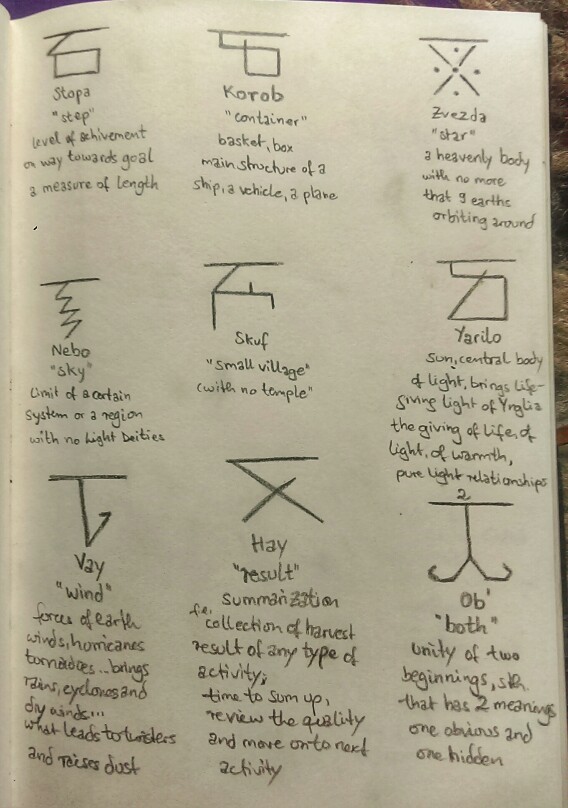 Stopa
"step"
level of achivement
on way towards goal
a measure of length
Korob
"container"
basket, box
main structure of a
ship, a vehicle, a plane
Zvezda
"star"
a heavenly body
with no more
that 9 earths
orbiting around
Nebo
"sky"
limit of a certain
system or a region
with no Light Deities
Skuf
"small village"
(with no temple"
Yarilo
sun, central body
of light, brings life-
giving light of Ynglia
the giving of life, of
light, of warmth,
pure light relationships
Vay
"wind"
forces of earth
winds, hurricanes
tornadoes... brings
rains, cyclones and
dry winds...
what leads to twisters
and raises dust
Hay
"result"
summarization
i.e. collection of harvest
result of any type of
activity;
time to sum up,
review the quality
and move onto next
activity
2
Ob'
"both"
unity of two
beginnings, sth.
that has 2 meanings
one obvious and
one hidden